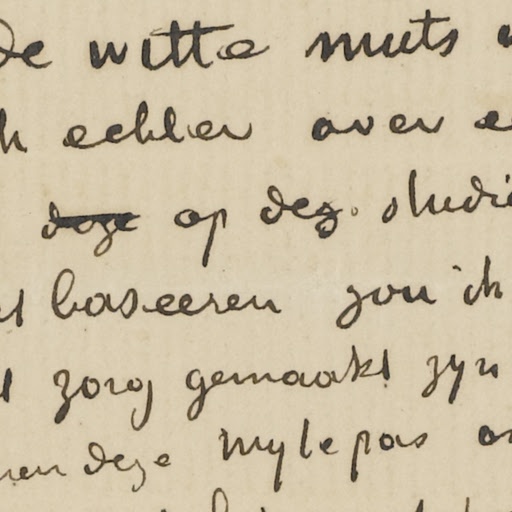 De witte muts
echter over
deze op dez. studie
baseeren zou ik
zorg gemaakt zyn
deze my le pas